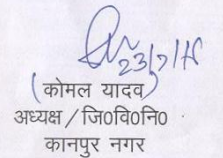 23/7/15
(कोमल यादव)
अध्यक्ष / जि0वि0नि0
कानपुर नगर